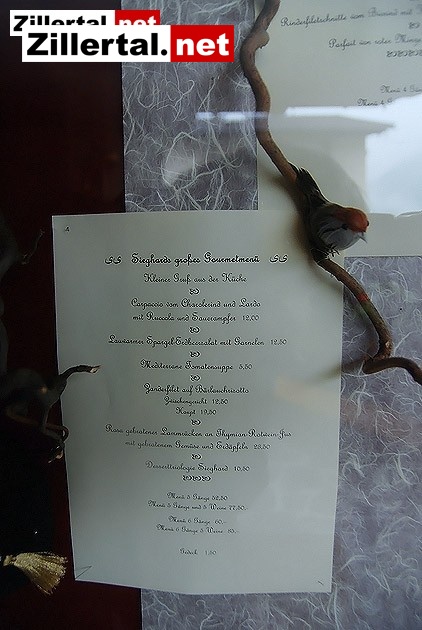 Zillertal.net
Zillertal.net
Rinderfiletschnitte vom
Parfait von roter
Menü 4
Menü 4
Sieghards großes Gourmetmenü
Kleiner Gruß aus der Küche
Carpaccio vom Charolerind und Lardo
mit Ruccola und Sauerampfer 12,00
Lauwarmer Spargel-Erdbeersalat mit Garnelen 12,50
Mediterrane Tomatensuppe 5,50
Zanderfilet auf Bärlauchrisotto
Zwischengericht 12,50
Haupt 19,50
Rosa gebratener Lammrücken an Thymian-Rotwein-Jus
mit gebratenem Gemüse und Erdäpfeln 23,50
Desserttriologie Sieghard 10,50
Menü 5 Gänge 52,50
Menü 5 Gänge und 5 Weine 77,50.-
Menü 6 Gänge 60.-
Menü 6 Gänge 5 Weine 85.-
Gedeck 1,50